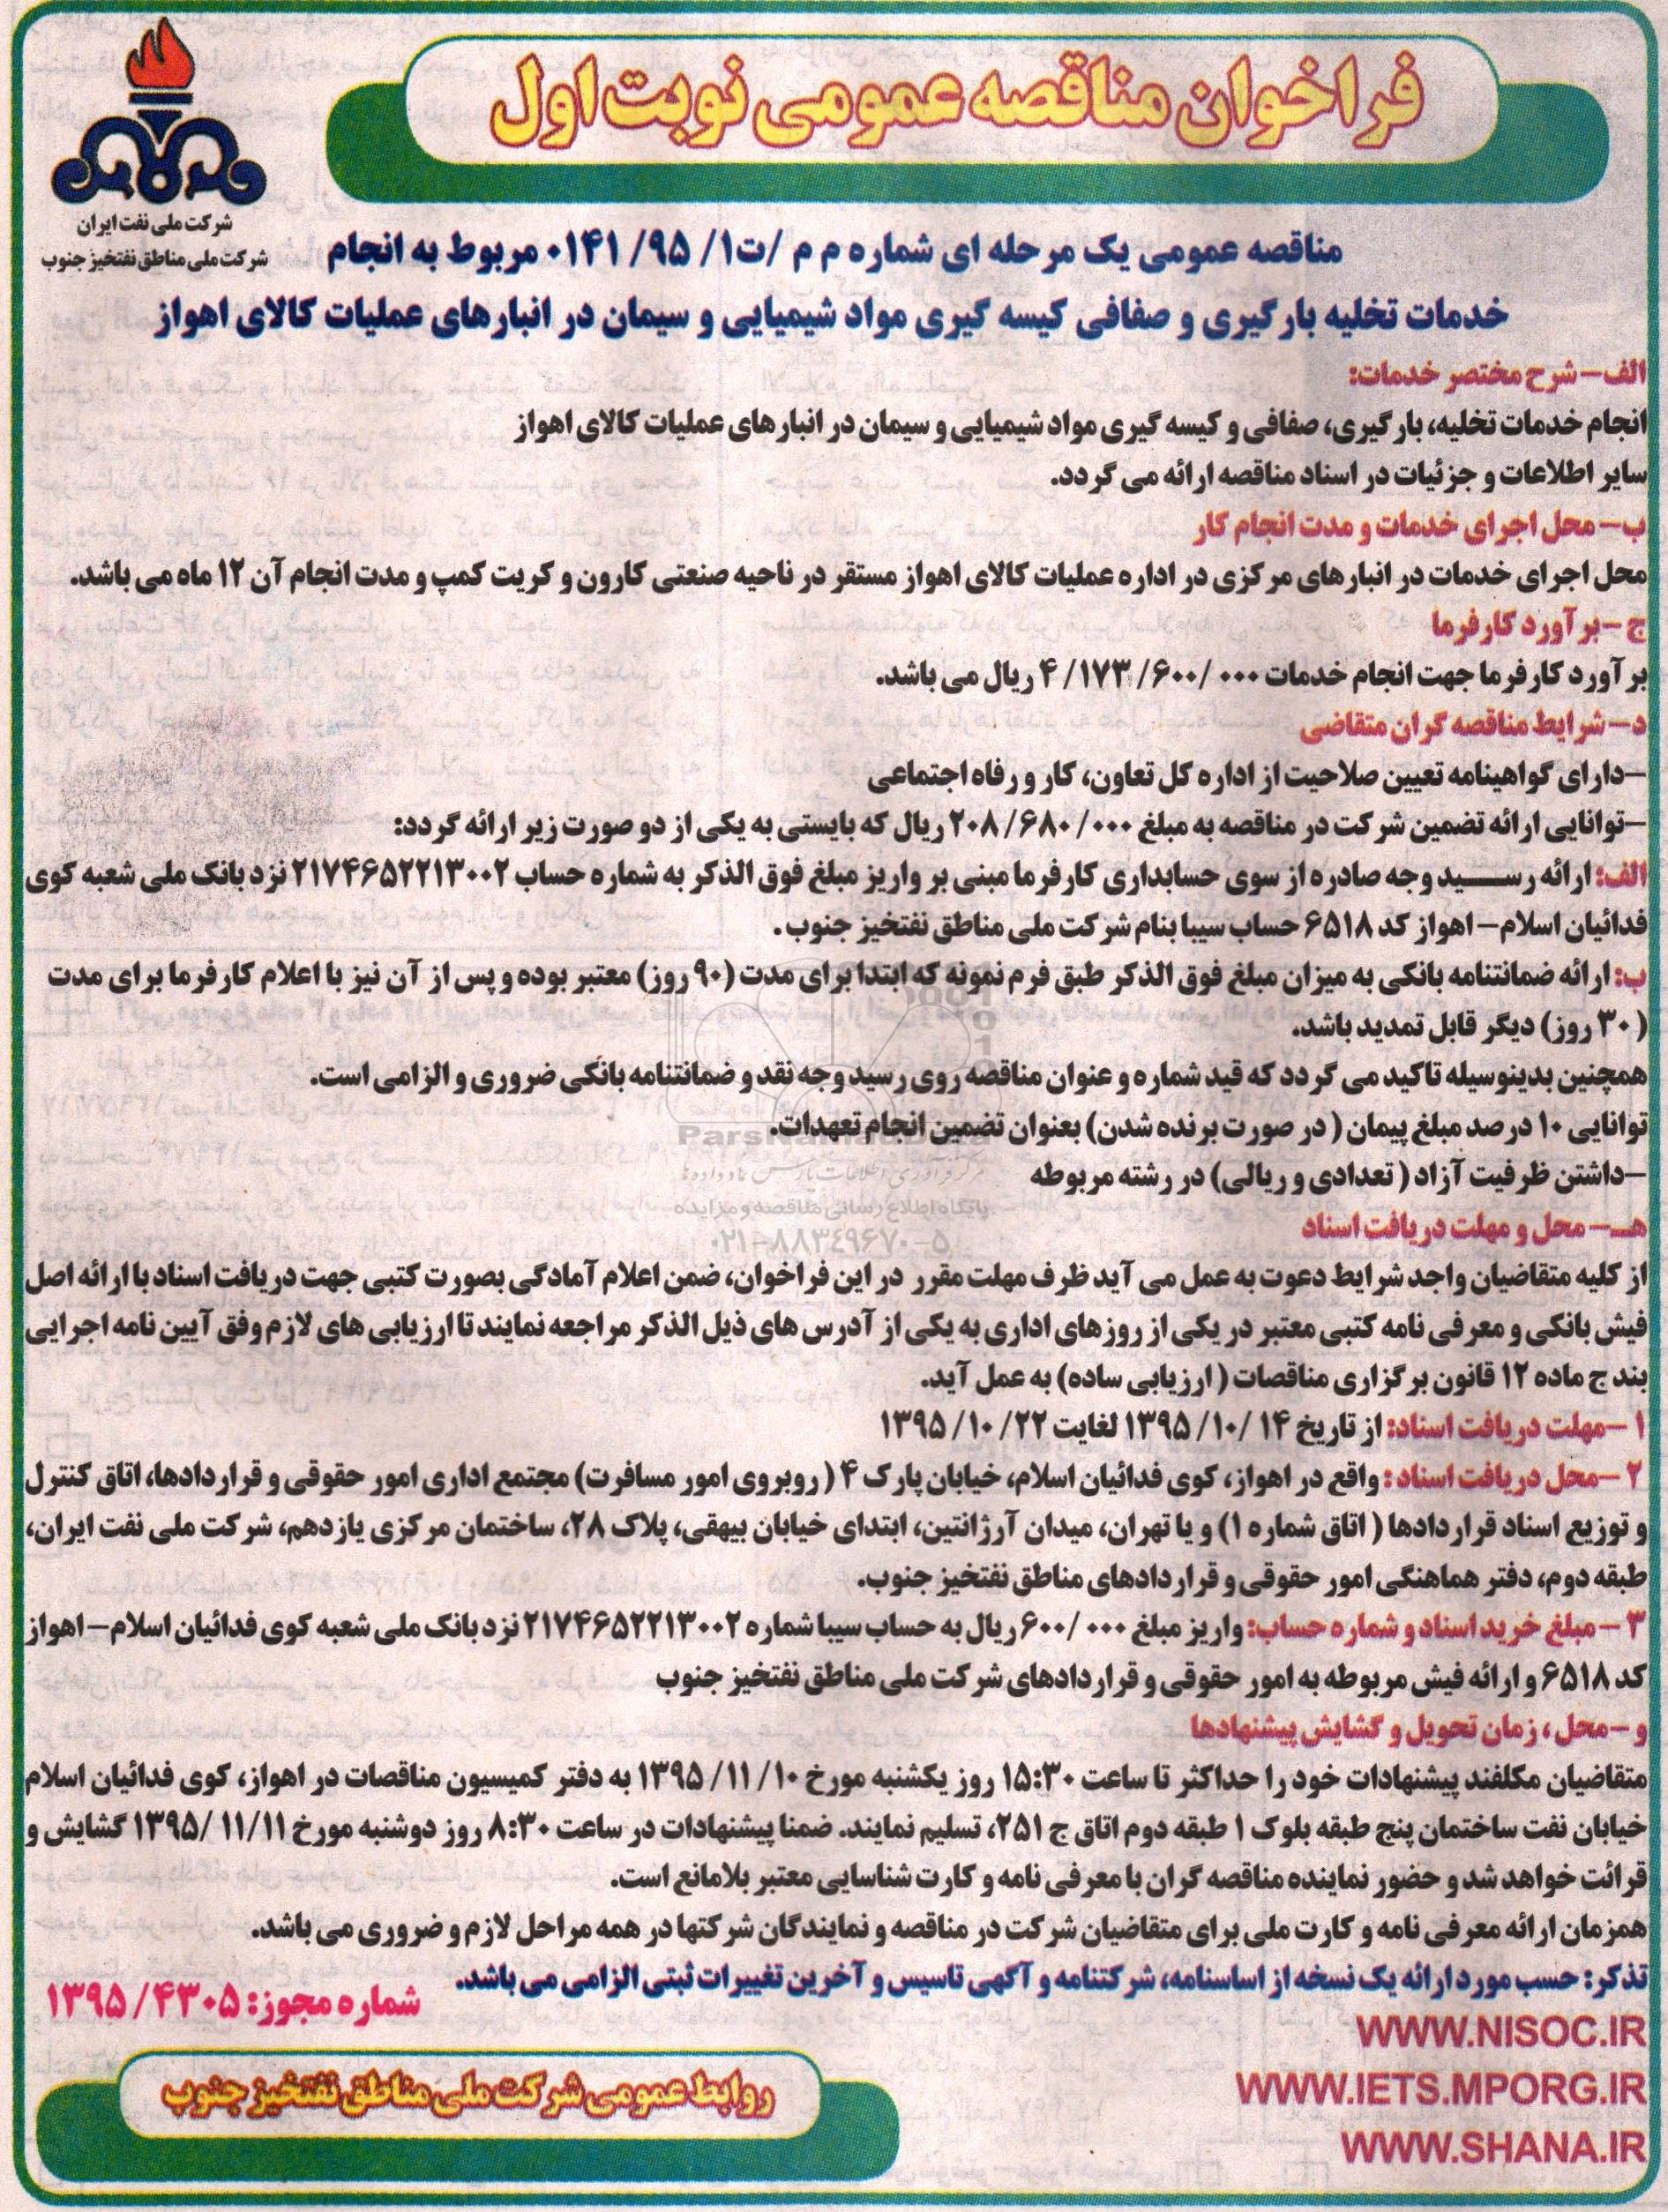 فراخوان مناقصه عمومی نوبت اول
شرکت ملی نفت ایران
شرکت ملی مناطق نفتخیز جنوب
مناقصه عمومی یک مرحله ای شماره م م /ت۱/ ۹۵/ ۰۱۴۱ مربوط به انجام
خدمات تخلیه بارگیری و صفافی کیسه گیری مواد شیمیایی و سیمان در انبارهای عملیات کالای اهواز
الف- شرح مختصر خدمات:
انجام خدمات تخلیه، بارگیری، صفافی و کیسه گیری مواد شیمیایی و سیمان در انبارهای عملیات کالای اهواز
سایر اطلاعات و جزئیات در اسناد مناقصه ارائه می گردد.
ب- محل اجرای خدمات و مدت انجام کار
محل اجرای خدمات در انبارهای مرکزی در اداره عملیات کالای اهواز مستقر در ناحیه صنعتی کارون و کریت کمپ و مدت انجام آن ۱۲ ماه می باشد.
ج -برآورد کارفرما
برآورد کارفرما جهت انجام خدمات ۰۰۰ /۶۰۰/ ۱۷۳/ ۴ ریال می باشد.
د- شرایط مناقصه گران متقاضی
-دارای گواهینامه تعیین صلاحیت از اداره کل تعاون، کار و رفاه اجتماعی
-توانایی ارائه تضمین شرکت در مناقصه به مبلغ ۰۰۰/ ۶۸۰/ ۲۰۸ ریال که بایستی به یکی از دو صورت زیر ارائه گردد:
الف: ارائه رسید وجه صادره از سوی حسابداری کارفرما مبنی بر واریز مبلغ فوق الذکر به شماره حساب ۲۱۷۴۶۵۲۲۱۳۰۰۲ نزد بانک ملی شعبه کوی
فدائیان اسلام- اهواز کد ۶۵۱۸ حساب سیبا بنام شرکت ملی مناطق نفتخیز جنوب.
ب: ارائه ضمانتنامه بانکی به میزان مبلغ فوق الذکر طبق فرم نمونه که ابتدا برای مدت (۹۰ روز) معتبر بوده و پس از آن نیز با اعلام کارفرما برای مدت
(۳۰ روز) دیگر قابل تمدید باشد.
همچنین بدینوسیله تاکید می گردد که قید شماره و عنوان مناقصه روی رسید وجه نقد و ضمانتنامه بانکی ضروری و الزامی است.
توانایی ۱۰ درصد مبلغ پیمان (در صورت برنده شدن) بعنوان تضمین انجام تعهدات.
ParsNamadData
-داشتن ظرفیت آزاد (تعدادی و ریالی) در رشته مربوطه
مرکز فرآوری اطلاعات پارس نماد داده ها
پایگاه اطلاع رسانی مناقصه و مزایده
۰۲۱-۸۸۳۴۹۶۷۰-۵
هـ- محل و مهلت دریافت اسناد
از کلیه متقاضیان واجد شرایط دعوت به عمل می آید ظرف مهلت مقرر در این فراخوان، ضمن اعلام آمادگی بصورت کتبی جهت دریافت اسناد با ارائه اصل
فیش بانکی و معرفی نامه کتبی معتبر در یکی از روزهای اداری به یکی از آدرس های ذیل الذکر مراجعه نمایند تا ارزیابی های لازم وفق آیین نامه اجرایی
بند ج ماده ۱۲ قانون برگزاری مناقصات (ارزیابی ساده) به عمل آید.
۱ -مهلت دریافت اسناد: از تاریخ ۱۴ /۱۰/ ۱۳۹۵ لغایت ۲۲/ ۱۰/ ۱۳۹۵
۲ -محل دریافت اسناد : واقع در اهواز، کوی فدائیان اسلام، خیابان پارک ۴ (روبروی امور مسافرت) مجتمع اداری امور حقوقی و قراردادها، اتاق کنترل
و توزیع اسناد قراردادها (اتاق شماره ۱) و یا تهران، میدان آرژانتین، ابتدای خیابان بیهقی، پلاک ۲۸، ساختمان مرکزی یازدهم، شرکت ملی نفت ایران،
طبقه دوم، دفتر هماهنگی امور حقوقی و قراردادهای مناطق نفتخیز جنوب.
۳ - مبلغ خرید اسناد و شماره حساب: واریز مبلغ ۰۰۰ /۶۰۰ ریال به حساب سیبا شماره ۲۱۷۴۶۵۲۲۱۳۰۰۲ نزد بانک ملی شعبه کوی فدائیان اسلام- اهواز
کد ۶۵۱۸ و ارائه فیش مربوطه به امور حقوقی و قراردادهای شرکت ملی مناطق نفتخیز جنوب
و -محل ، زمان تحویل و گشایش پیشنهادها
متقاضیان مکلفند پیشنهادات خود را حداکثر تا ساعت ۱۵:۳۰ روز یکشنبه مورخ ۱۰/ ۱۱/ ۱۳۹۵ به دفتر کمیسیون مناقصات در اهواز، کوی فدائیان اسلام
خیابان نفت ساختمان پنج طبقه بلوک ۱ طبقه دوم اتاق ج ۲۵۱، تسلیم نمایند. ضمنا پیشنهادات در ساعت ۸:۳۰ روز دوشنبه مورخ ۱۱/۱۱ /۱۳۹۵ گشایش و
قرائت خواهد شد و حضور نماینده مناقصه گران با معرفی نامه و کارت شناسایی معتبر بلامانع است.
همزمان ارائه معرفی نامه و کارت ملی برای متقاضیان شرکت در مناقصه و نمایندگان شرکتها در همه مراحل لازم و ضروری می باشد.
تذکر: حسب مورد ارائه یک نسخه از اساسنامه، شرکتنامه و آگهی تاسیس و آخرین تغییرات ثبتی الزامی می باشد.
شماره مجوز: ۴۳۰۵/ ۱۳۹۵
WWW.NISOC.IR
WWW.IETS.MPORG.IR
WWW.SHANA.IR
روابط عمومی شرکت ملی مناطق نفتخیز جنوب